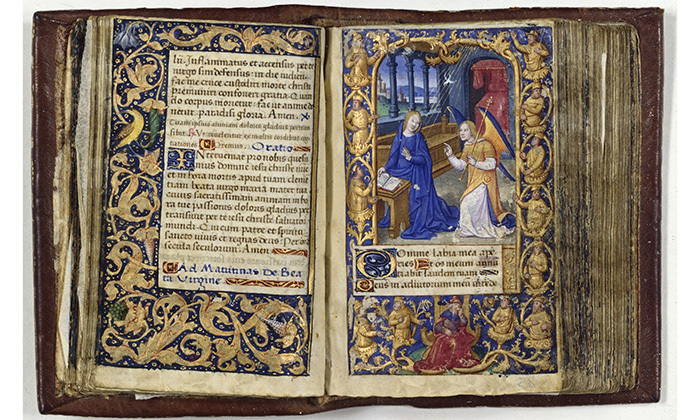 lu. Inflammatus et accensus per te
virgo sim defensus: in die iudicii
fac me cruce custodiri morte christi
premuniri confoveri gratia. Quan
do corpus morietur: fac ut anime do
netur paradisi gloria. Amen.
Tuam ipsius animam doloris gladius pertran
sibit.
tationes. Oremus. Oratio
Interveniat pro nobis quesu
mus domine iesu christe nunc
et in hora mortis apud tuam clemen
tiam beata virgo maria mater tua
cuius sacratissimam animam in ho
ra tue passionis doloris gladius per
transivit per te iesu christe salvator
mundi. Qui cum patre et spiritu
sancto vivis et regnas deus. Per omnia
secula seculorum. Amen.
Ad Matutinas De Bea
ta Virgine
Domine labia mea ape
ries. Et os meum annu
tiabit laudem tuam
Deus in adiutorium meum intende